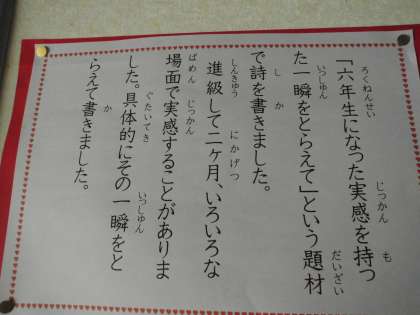 「六年生になった実感を持っ
た一瞬をとらえて」という題材
で詩を書きました。
進級して二ヶ月、いろいろな
場面で実感することがありま
した。具体的にその一瞬をと
らえて書きました。